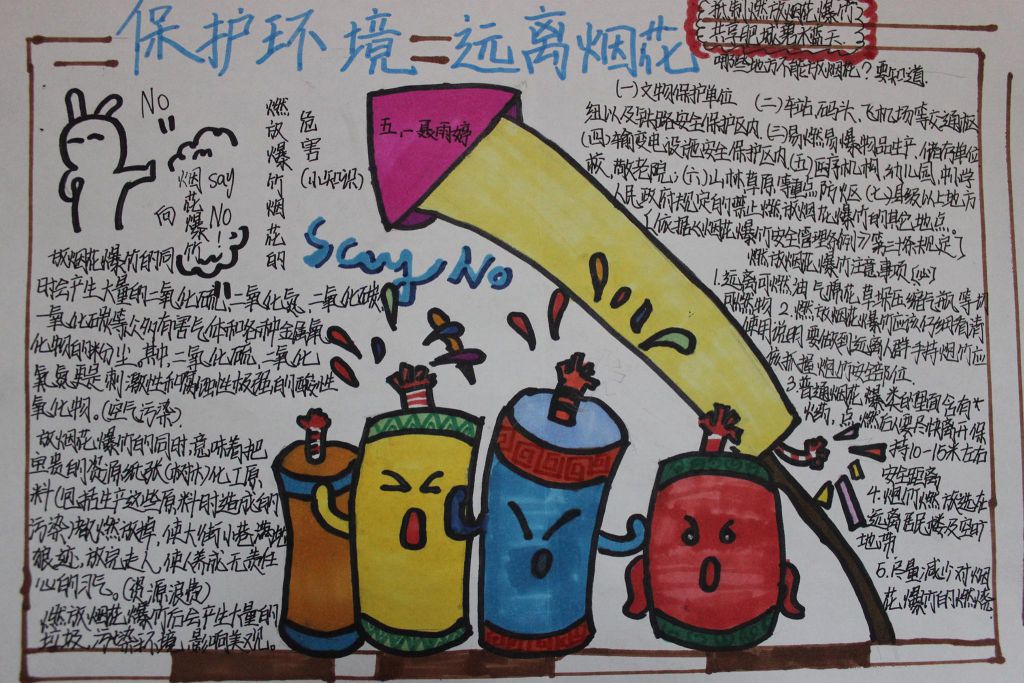 保护环境 远离烟花
抵制燃放烟花爆竹
共享肥城碧水蓝天
No
向
烟花爆竹
say
No
!
燃放爆竹烟花的
危害
(小知识)
五、一聂雨婷
Say No
放烟花爆竹的同
时会产生大量的二氧化硫、二氧化氮、二氧化碳
一氧化碳等众多有害气体和各种金属氧
化物的粉尘。其中二氧化硫、二氧化
氮更是刺激性和腐蚀性极强的酸性
氧化物。(空气污染)
放烟花爆竹的同时,意味着把
宝贵的资源纸张(树木)化工原
料(包括生产这些原料时造成的
污染)都燃放掉,使大街小巷满地
狼迹,放完走人,使人养成无责任
心的习气。(资源浪费)
燃放烟花爆竹后会产生大量的
垃圾,污染环境,影响美观。
哪些地方不能放烟花?要知道
(一)文物保护单位 (二)车站、码头、飞机场等交通枢
纽以及铁路安全保护区内(三)易燃易爆物品生产、储存单位
(四)输变电设施安全保护区内(五)医疗机构、幼儿园、中小学
敬老院;(六)山林草原等重点防火区(七)县级以上地方
人民政府规定的禁止燃放烟花爆竹的其它地点。
【依据《烟花爆竹安全管理条例》第三十条规定】
燃放烟花爆竹注意事项
1.远离可燃油气棉花草垛压缩气瓶等
可燃物 2.燃放烟花爆竹应该仔细看清
使用说明要做到远离人群手持烟竹应
该抓握烟竹安全部位.
3.普通烟花爆类台里面含有
火药,点燃后要尽快离开保
持10-16米左右
安全距离
4.烟竹燃放选在
远离居民楼及空旷
地带
5.尽量减少对烟
花爆竹的燃烧